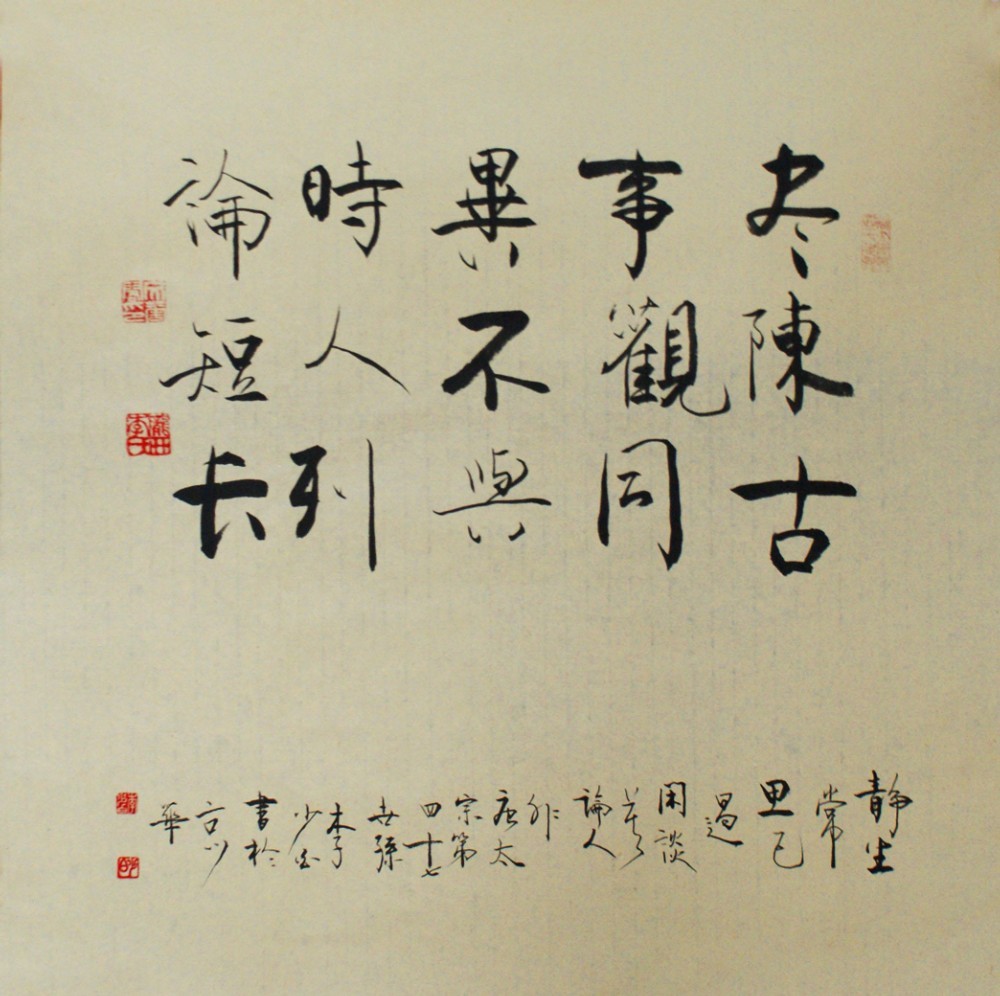 尽陳古
事觀同
異不與
時人列
論短長
靜坐
常
思己
過
閑談
莫
論人
非
唐太
宗第
四十七
世孫
木子
少
書於
華